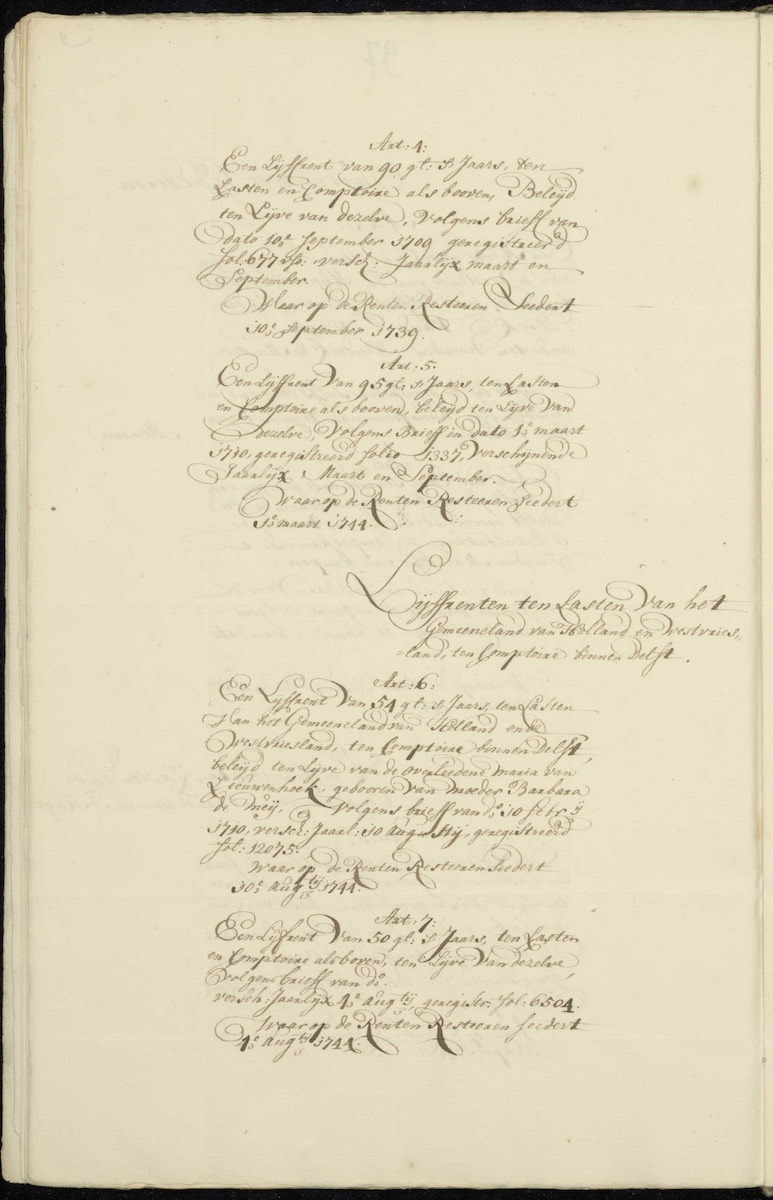 Art: 4:
Een Lijffrent van 90 gl: s'Jaars, ten
Lasten en Comptoire als booven, Beleijd
ten Lijve van dezelve, Volgens brieff van
dato 10e September 1709 geregistreerd
fol: 677 vso: versch: Jaarlijx maart en
September.
Waar op de Renten Resteeren Seedert
10e September 1739.
Art: 5.
Een Lijffrent Van 95 gl: s'Jaars, ten Lasten
en Comptoire als booven, beleijd ten Lijve Van
dezelve, Volgens Brieff in dato 1e maart
1710, geregistreerd folio 1337, Verschijnende
Jaarlijx Maart en September.
Waar op de Renten Resteeren Seedert
1e maart 1744.
Lijffrenten ten Lasten Van het
Gemeeneland van Holland en Westvries„
„land, ten Comptoire binnen Delft.
Art: 6:
Een Lijffrent Van 54 gl: s'Jaars, ten Lasten
Van het Gemeeneland van Holland ende
Westvriesland, ten Comptoire binnen Delft,
beleijd ten Lijve van de overleedene Maria van
Leeuwenhoek, gebooren van moeder Barbara
de Meij, Volgens brieff van do 10 febrij
1710, versch: Jaarl: 10 Augustij, geregistreerd
fol: 12075.
Waar op de Renten Resteeren Seedert
10e Augtij 1744.
Art: 7:
Een Lijfrent Van 50 gl: s'Jaars, ten Lasten
en Comptoire als boven, ten Lijve Van dezelve,
Volgens brieff van do.
versch: Jaarlijx 4e Augtij, geregistr: fol: 6504.
Waar op de Renten Resteeren seedert
4e Augtij 1744.